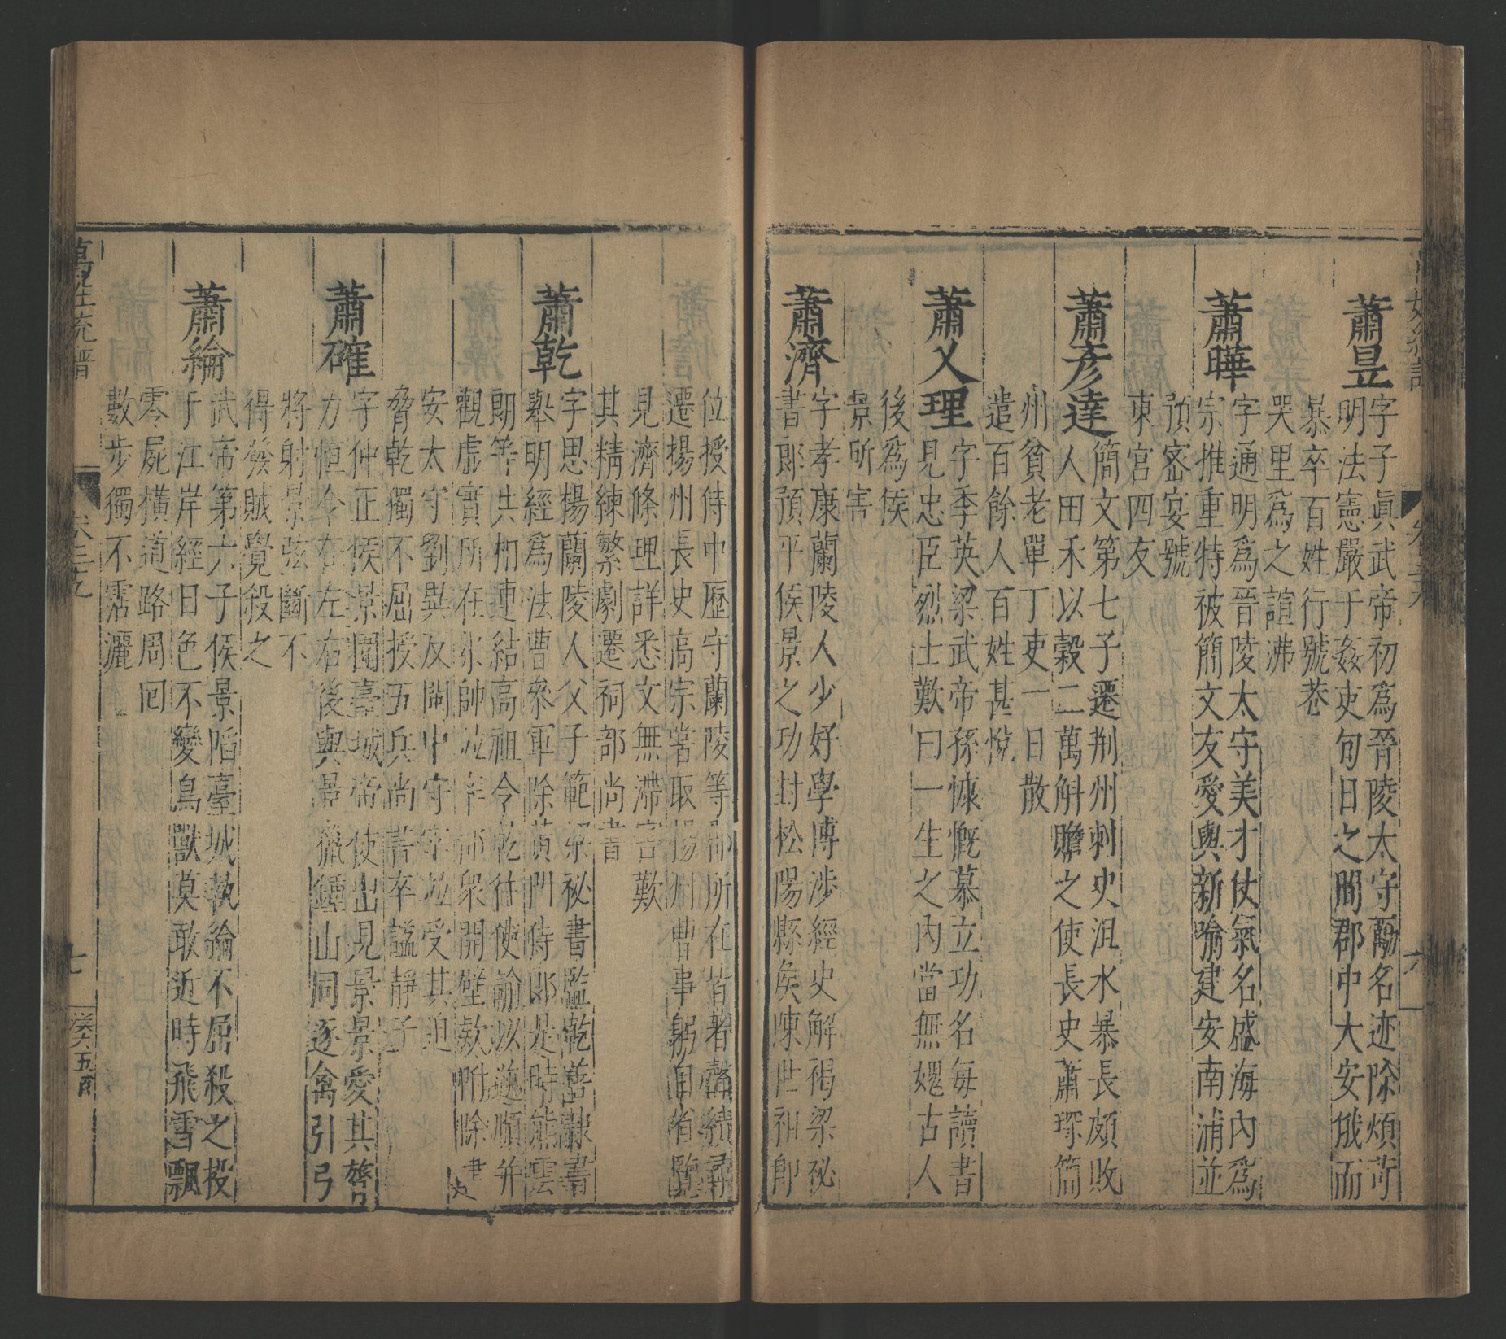 蕭昱
字子眞武帝初爲晉陵太守勵名迹除煩苛
明法憲嚴于姦吏旬日之間郡中大安俄而
暴卒百姓行號巷
哭里爲之諠沸
蕭曄
字通明爲晉陵太守美才仗氣名盛海內爲
宗推重特被簡文友愛與新喻建安南浦並
預密宴號
東宮四友
蕭彥達
簡文第七子遷荆州刺史沮水暴長頗敗
人田禾以穀二萬斛贍之使長史蕭琛簡
州貧老單丁吏一日散
遣百餘人百姓甚悅
蕭乂理
字季英梁武帝孫慷慨慕立功名每讀書
見忠臣烈士歎曰一生之內當無媿古人
後爲侯
景所害
蕭濟
字孝康蘭陵人少好學博涉經史解褐梁祕
書郎預平侯景之功封松陽縣侯陳世祖卽
位授侍中歷守蘭陵等郡所在皆著聲績尋
遷揚州長史高宗嘗取揚州曹事躬自省覽
見濟條理詳悉文無滯害歎
其精練繁劇遷祠部尚書
蕭乾
字思楊蘭陵人父子範梁祕書監乾善隸書
舉明經爲法曹參軍除黃門侍郎是時熊雲
朗等共相連結高祖令乾往使諭以逆順并
觀虛實所在水帥並率部眾開壁款附除
安太守劉與反閩中守宰並受其迫
脅乾獨不屈授五兵尚書卒謚靜子
蕭確
字仲正侯景圍臺城帝使出見景景愛其膂
力恒令在左右後與景獵鍾山同逐禽引弓
將射景弦斷不
得發賊覺殺之
蕭綸
武帝第六子侯景陷臺城執綸不屈殺之投
于江岸經日色不變鳥獸莫敢近時飛雪飄
零屍橫道路周回
數步獨不霑灑
萬姓統譜
七